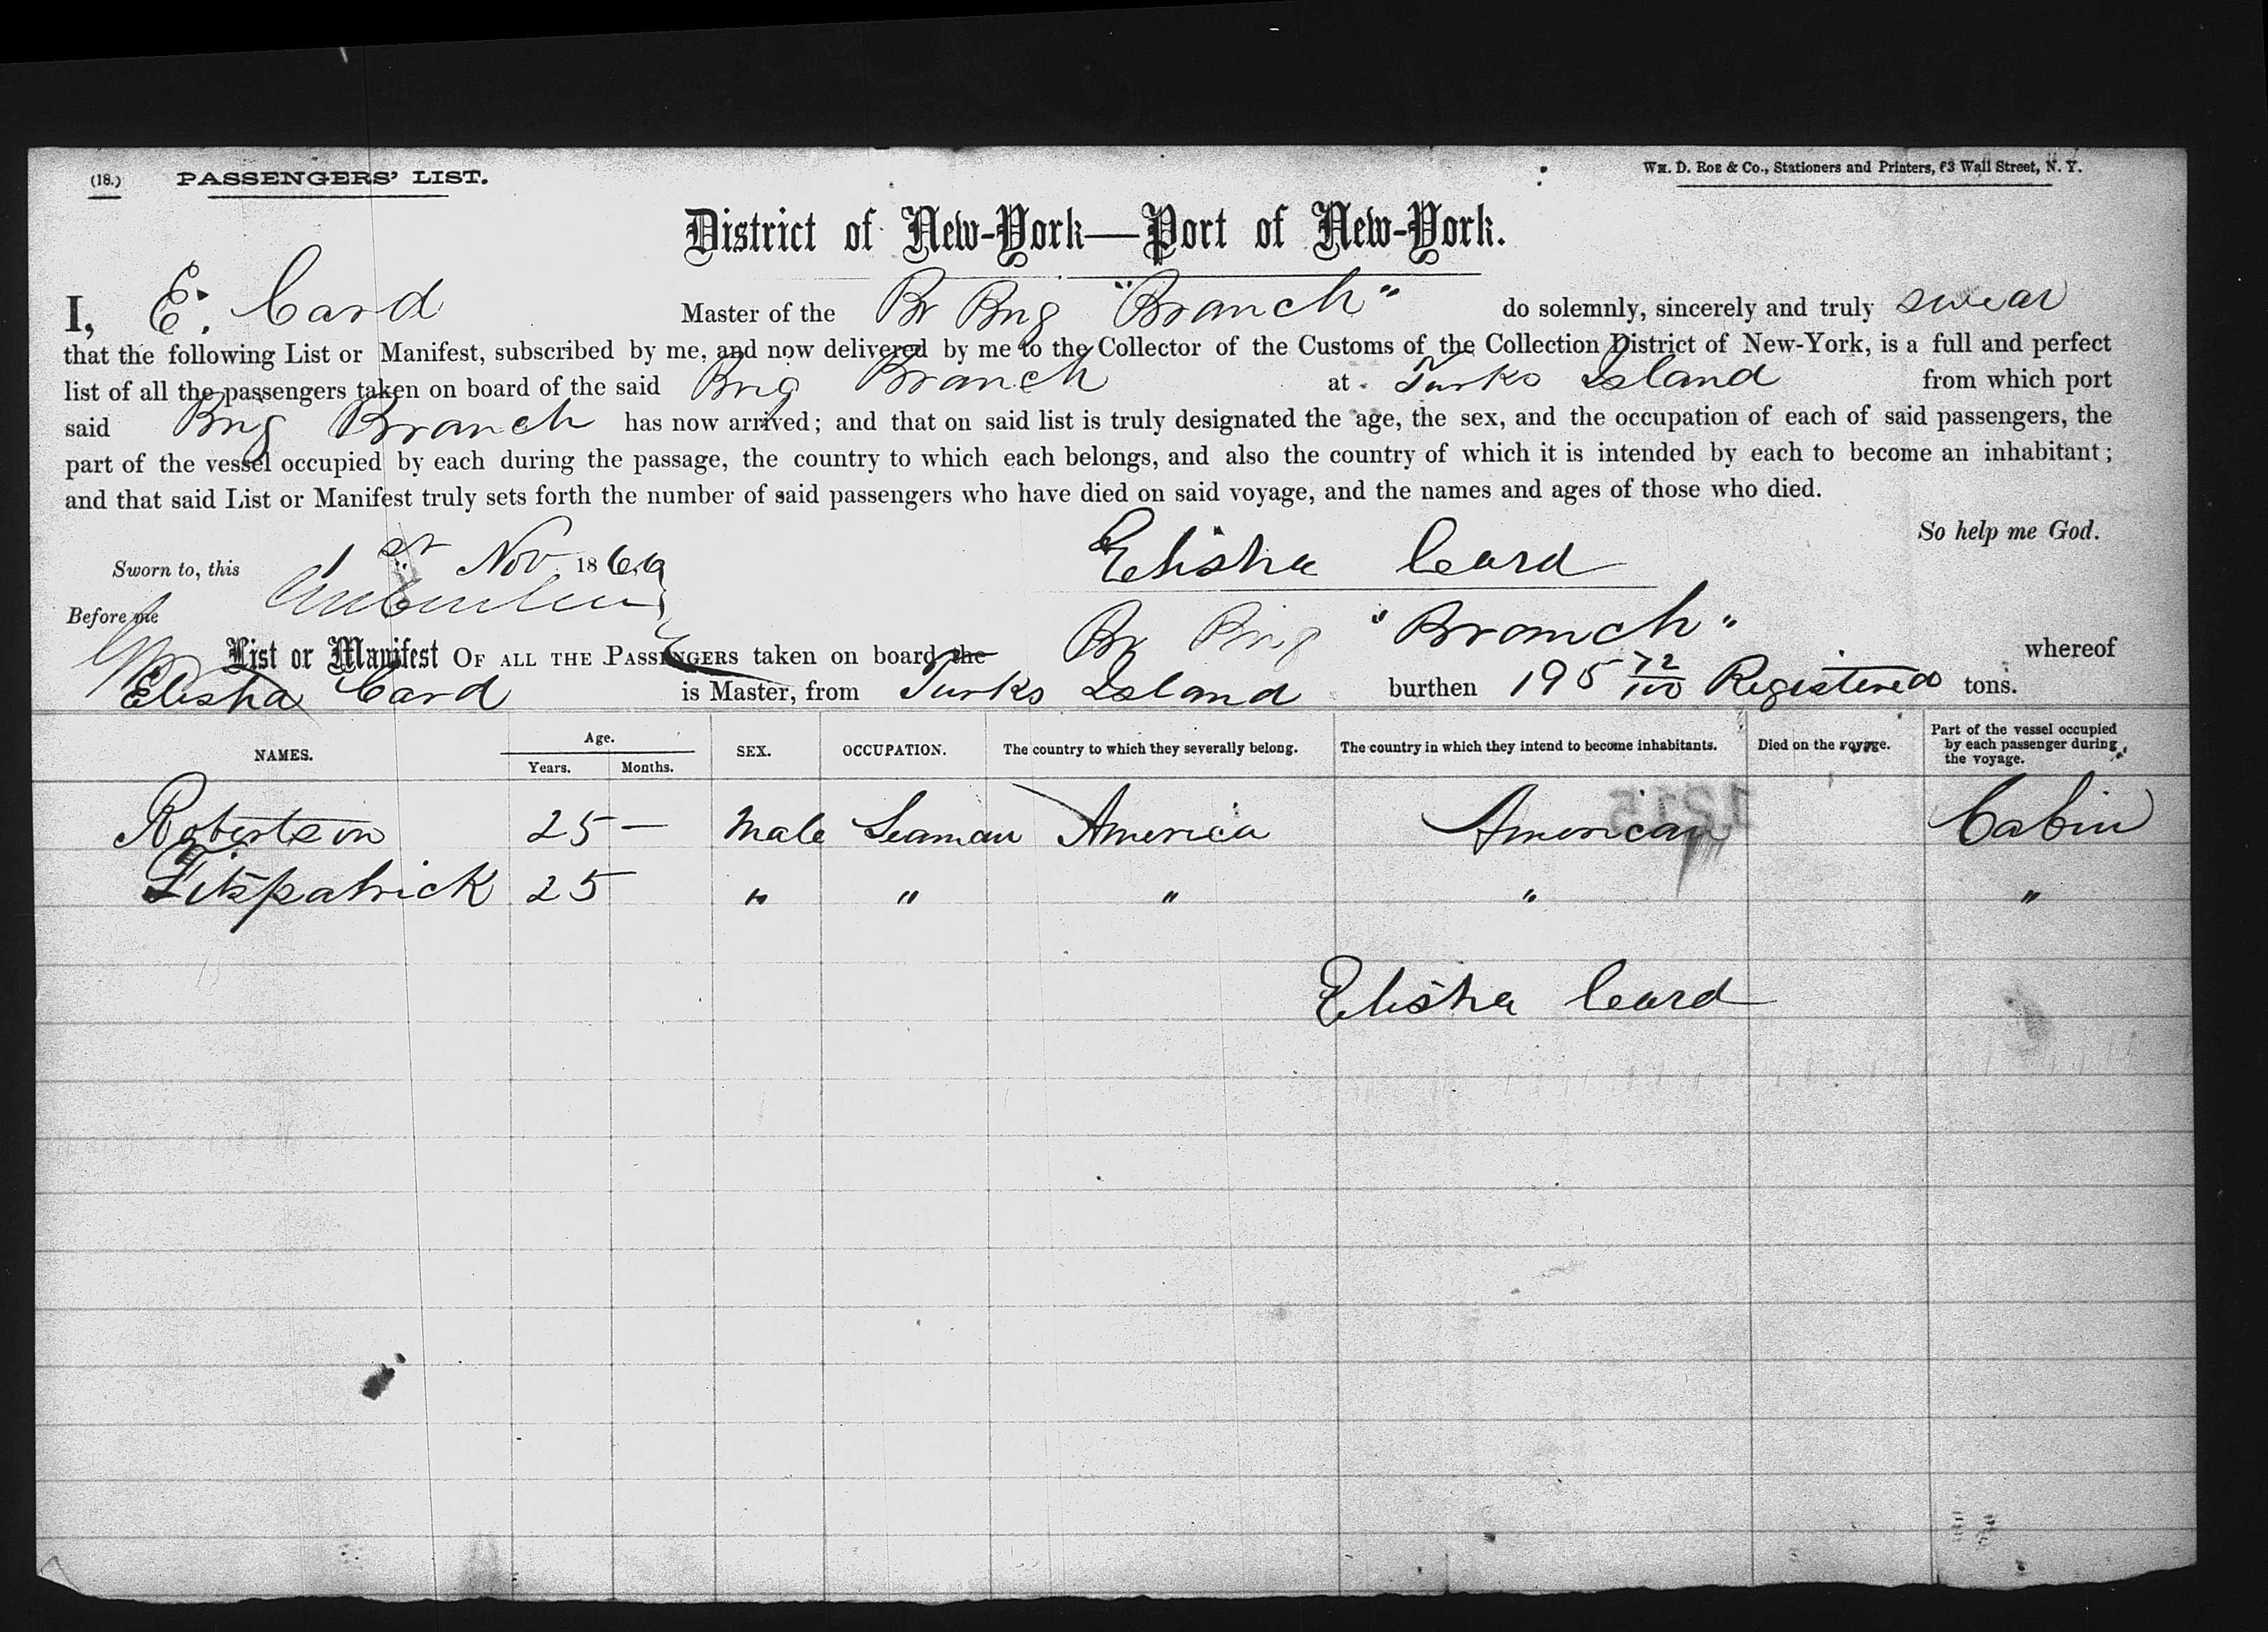 (18.) PASSENGERS' LIST. Wm. D. Roe & Co., Stationers and Printers, 63 Wall Street, N. Y.
District of New-York—Port of New-York.
I, E. Card Master of the Br Brig "Branch" do solemnly, sincerely and truly swear
that the following List or Manifest, subscribed by me, and now delivered by me to the Collector of the Customs of the Collection District of New-York, is a full and perfect
list of all the passengers taken on board of the said Brig Branch at Turks Island from which port
said Brig Branch has now arrived; and that on said list is truly designated the age, the sex, and the occupation of each of said passengers, the
part of the vessel occupied by each during the passage, the country to which each belongs, and also the country of which it is intended by each to become an inhabitant;
and that said List or Manifest truly sets forth the number of said passengers who have died on said voyage, and the names and ages of those who died.
So help me God.
Sworn to, this 1st Nov 1869 Elisha Card
Before me
List or Manifest OF ALL THE PASSENGERS taken on board the Br Brig "Branch" whereof
Elisha Card is Master, from Turks Island burthen 195 72/100 Registered tons.
NAMES. Age. Years. Months. SEX. OCCUPATION. The country to which they severally belong. The country in which they intend to become inhabitants. Died on the voyage. Part of the vessel occupied by each passenger during the voyage.
Robertson 25 — Male Seaman America American Cabin
Fitzpatrick 25 " " " " "
Elisha Card
1215